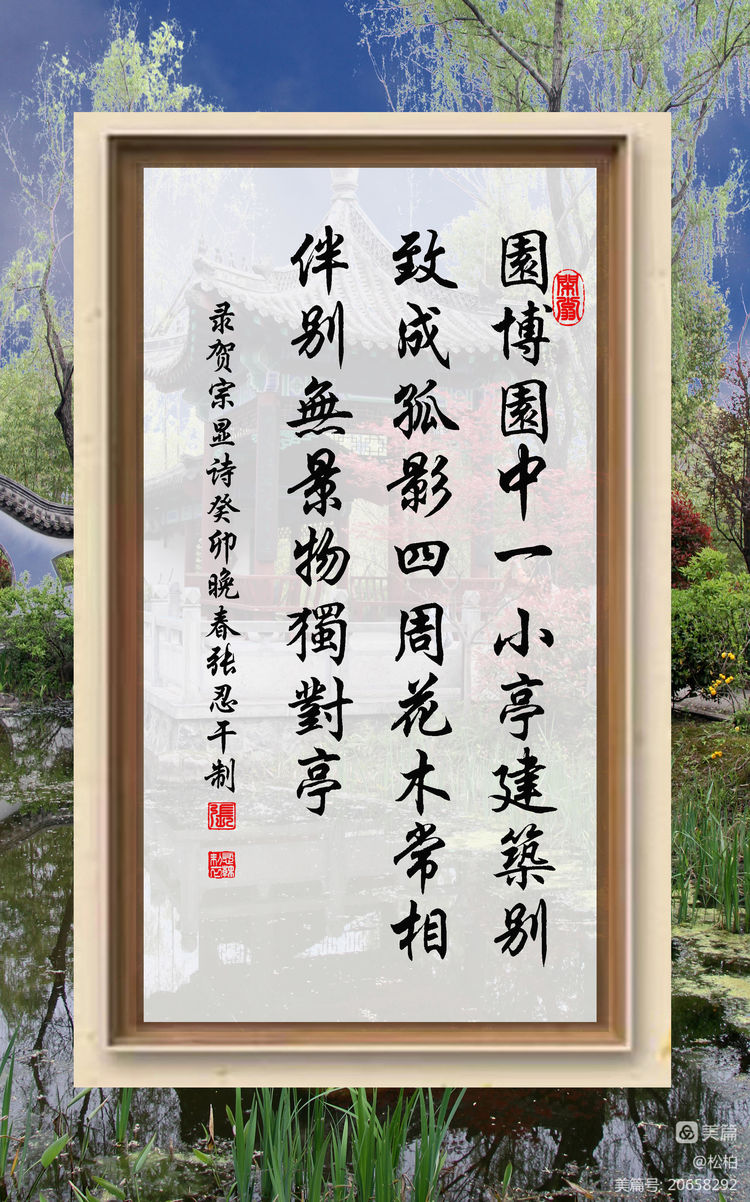 園博園中一小亭建築別
致成孤影四周花木常相
伴别無景物獨對亭
录贺宗显诗癸卯晚春张忍干制
張
美篇
@松柏
美篇号: 20658292